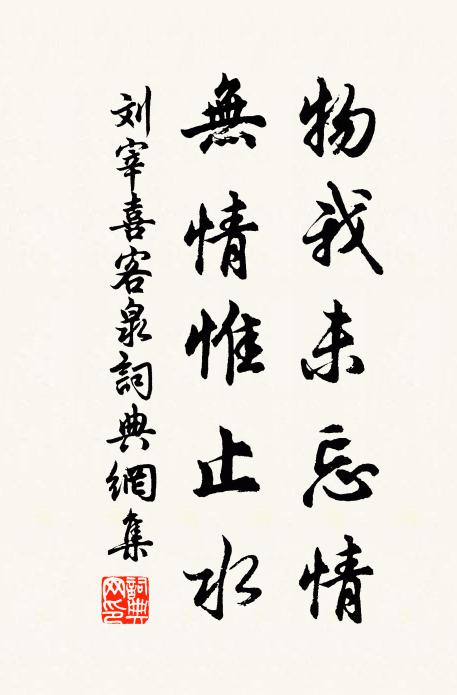 物我未忘情
無情惟止水
刘宰喜客泉詞典網集
詞典網印